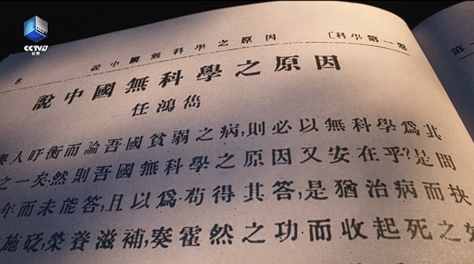 CCTV 9
纪录
8 說中國無科學之原因 [科學第一卷
第
說中國無科學之原因
任鴻雋
人盱衡而論吾國貧弱之病,則必以無科學爲其
之一矣然則吾國無科學之原因又安在乎?是問
年而未能答,且以爲苟得其答,是猶治病而抉
施砭,榮養滋補,奏霍然之功而收起死之